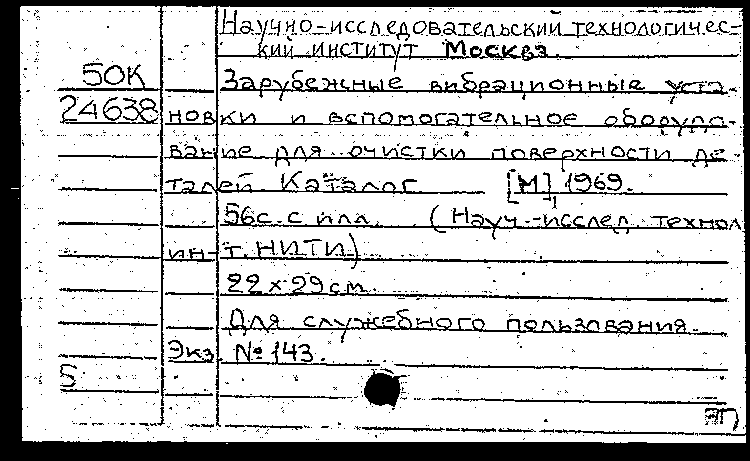 Научно-исследовательский технологичес-
кий институт Москва.
50К Зарубежные вибрационные уста-
24638 новки и вспомогательное оборудо-
вание для очистки поверхности де-
талей. Каталог [М], 1969.
56с. с илл. (Науч.-исслед. технол
ин-т. НИТИ)
22×29см.
Для служебного пользования.
Экз. №143.
5